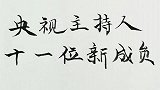 央视主持人
十一位新成员